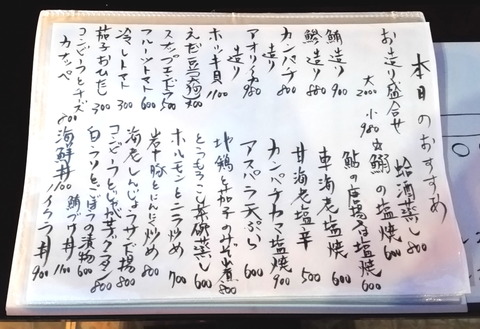 本日のおすすめ
お造り盛合せ
大2000 小980
鮪造り 900
鯵造り 880
カンパチ造り 800
アオリイカ造り 980
ホッキ貝 1100
えだ豆
スナップエンドウ 500
フルーツトマト 600
冷しトマト 300
茄子おひたし 300
コンビーフとチーズ
カナッペ 800
蛤酒蒸し 800
鮎の塩焼 600
車海老塩焼 600
甘海老塩辛 500
カンパチカマ塩焼 900
アスパラ天ぷら 600
地鶏と茄子の 煮 800
とうもろこし茶碗蒸し 600
ホルモンとニラ炒め 700
岩中豚とにんにく炒め 800
海老しんじょうゆば揚 800
コンビーフとじゃが芋 800
白ウリとごぼうの漬物 600
鮪づけ丼 1100
海鮮丼 1100
イクラ丼 900